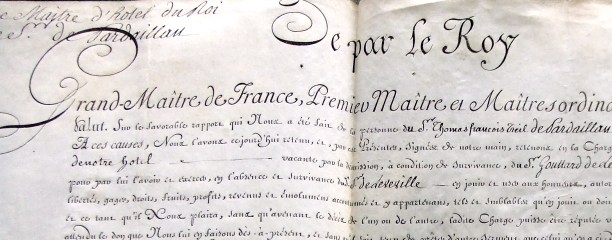 Maître d'hôtel du Roi
Sr. de Pardaillan
De par le Roy
Grand-Maître de France, Premier Maître et Maîtres ordin
Salut. Sur le favorable rapport qui Nous a été fait de la personne du Sr. Thomas françois Treil de Pardaillan
A ces causes, Nous l'avons cejourd'huy retenu, et par ces Présentes, signées de notre main, retenons en la Charge
de notre hotel vacante par la démission, à condition de survivance, du Sr. Gouttard de
pour par lui l'avoir et exercer, en l'absence et survivance dud. Sr. de Leveville en jouir et user aux honneurs, auto
libertés, gages, droits, fruits, profits, revenus et émolumens accoutumés et y appartenans, tels et semblables qu'en jouit ou doit
et ce tant qu'il Nous plaira, sans qu'avenant le décès de l'un ou de l'autre, ladite Charge puisse être réputée
attendu le don que Nous lui en faisons dès-à-présent, et sans